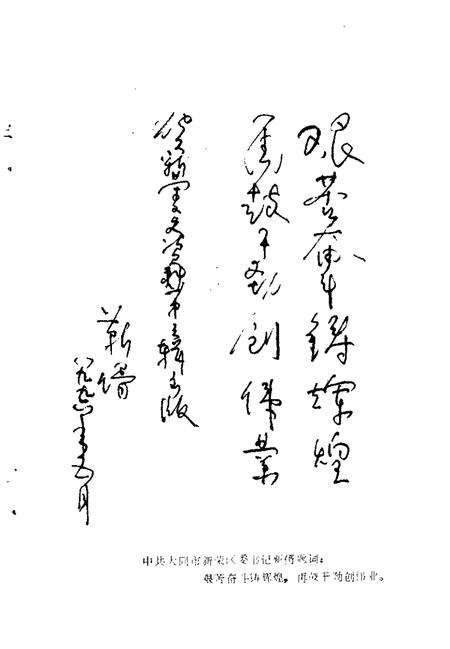 艰苦奋斗铸辉煌
再鼓干劲创伟业
贺新荣文史资料第三辑出版
靳僐
一九九六年五月
中共大同市新荣区委书记靳僐题词：
艰苦奋斗铸辉煌，再鼓干劲创伟业。